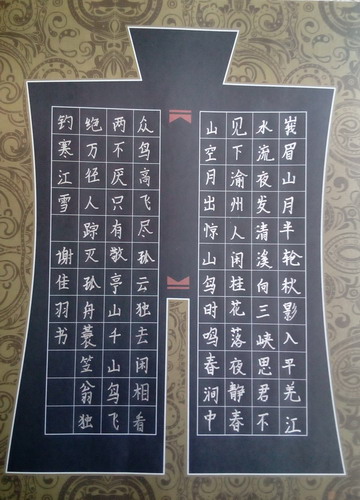 峩眉山月半轮秋影入平羌江
水流夜发清溪向三峡思君不
见下渝州人闲桂花落夜静春
山空月出惊山鸟时鸣春涧中
众鸟高飞尽孤云独去闲相看
两不厌只有敬亭山千山鸟飞
绝万径人踪灭孤舟蓑笠翁独
钓寒江雪 谢佳羽书